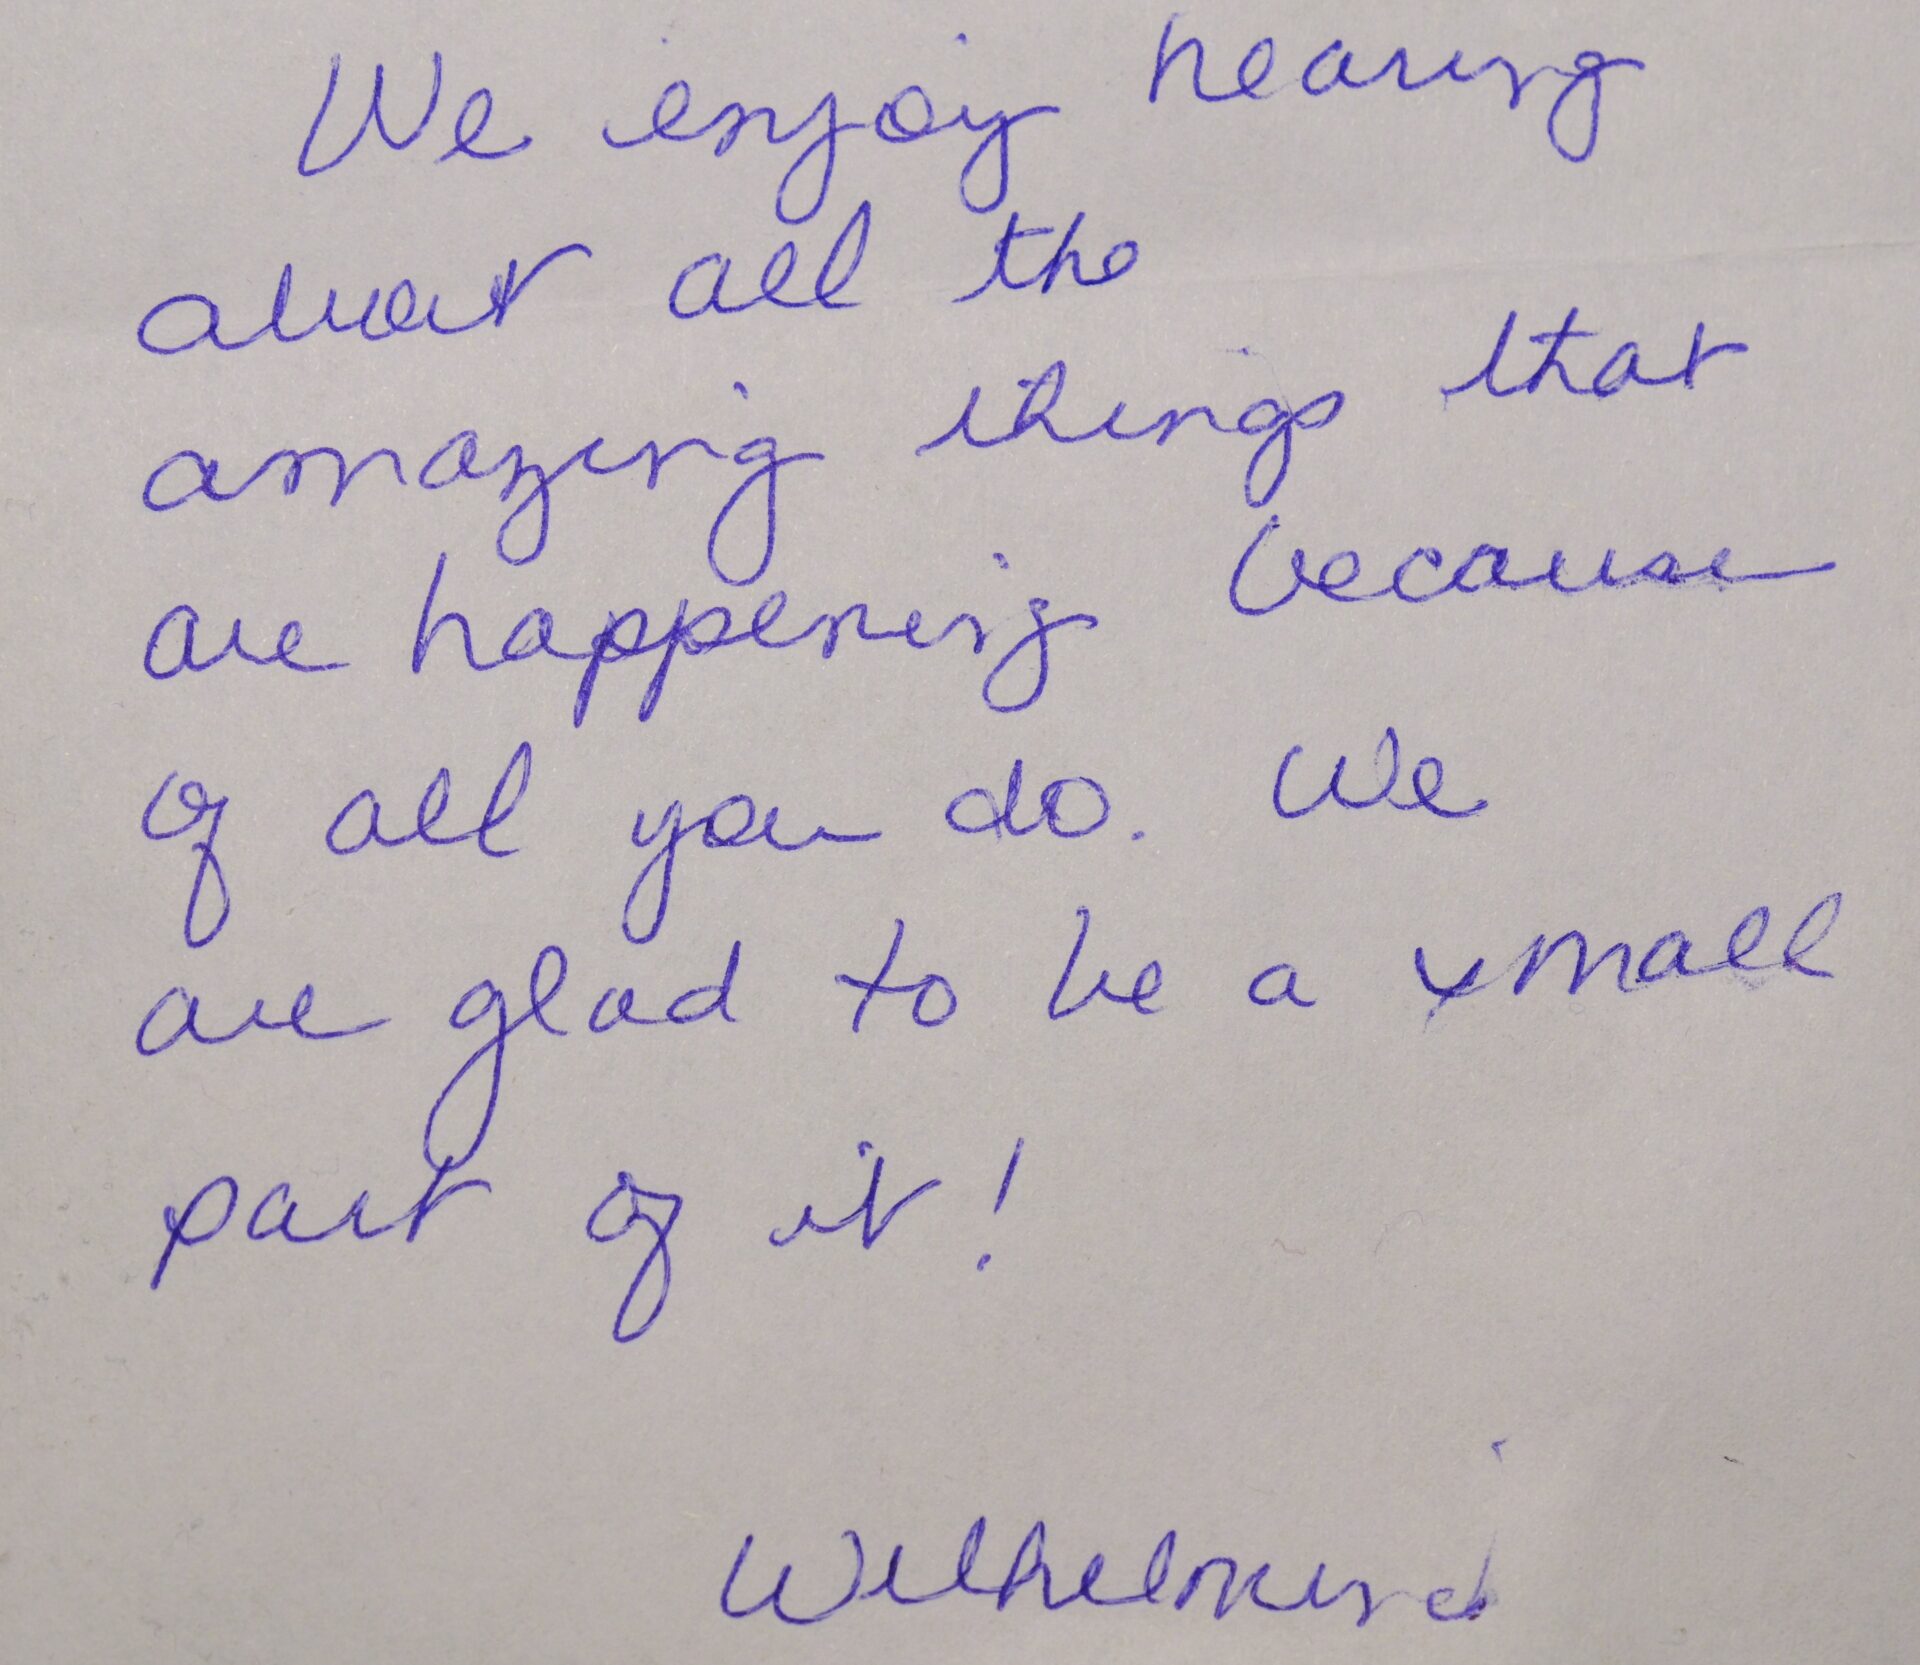 We enjoy hearing
about all the
amazing things that
are happening because
of all you do. We
are glad to be a small
part of it!
Wilhelmina